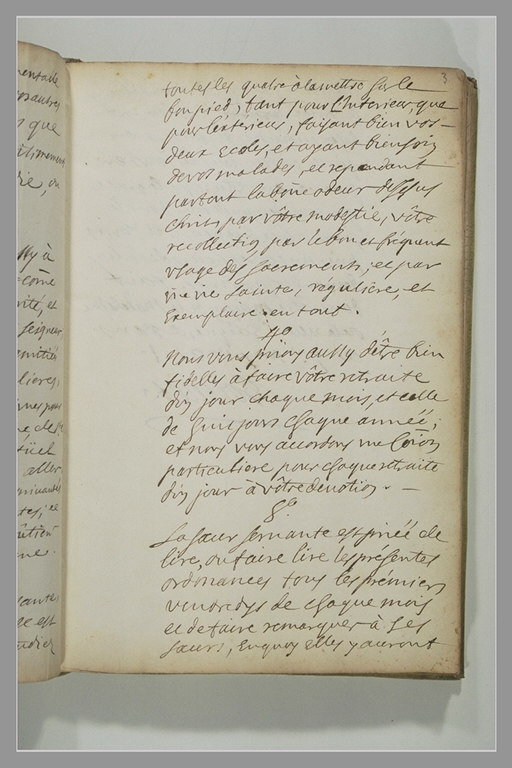 3
toutes les quatre à la mettre sur le
bon pied, tant pour l'interieur, que
pour l'extérieur, faisant bien vos
deux Ecoles, et ayant bien soin
de vos malades, et rependant
partout la bone odeur de Jesus
Christ, par vôtre modestie, vôtre
recollectio, par le bon et fréquent
usage des Sacrements, et par
une vie sainte, régulière, et
Exemplaire en tout.
7o
Nous vous prions aussy d'être bien
fidelles à faire vôtre retraite
d'un jour chaque mois, et celle
de huit jours chaque année;
et nous vous accordons une Coion
particuliere pour chaque retraite
d'un jour à vôtre devotion. —
8o
La sœur servante est priée de
lire, ou faire lire les présentes
ordonances tous les prémiers
vendredys de chaque mois
et de faire remarquer à ses
sœurs, en quoy Elles y auront
mentaile
que
rie, ou
sy à
come
rité, et
seigneur
lieres,
aller
ne.